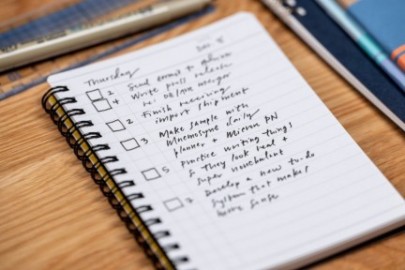 Thursday
2 Send email to
4 Write press release
re: merger
2 Finish receiving
import shipment
3 Make sample with
Mnemosyne daily
planner + Micron PN
5 practice writing things
so they look neat &
super nonchalant
7 Develop a new to-do
system that makes
more sense